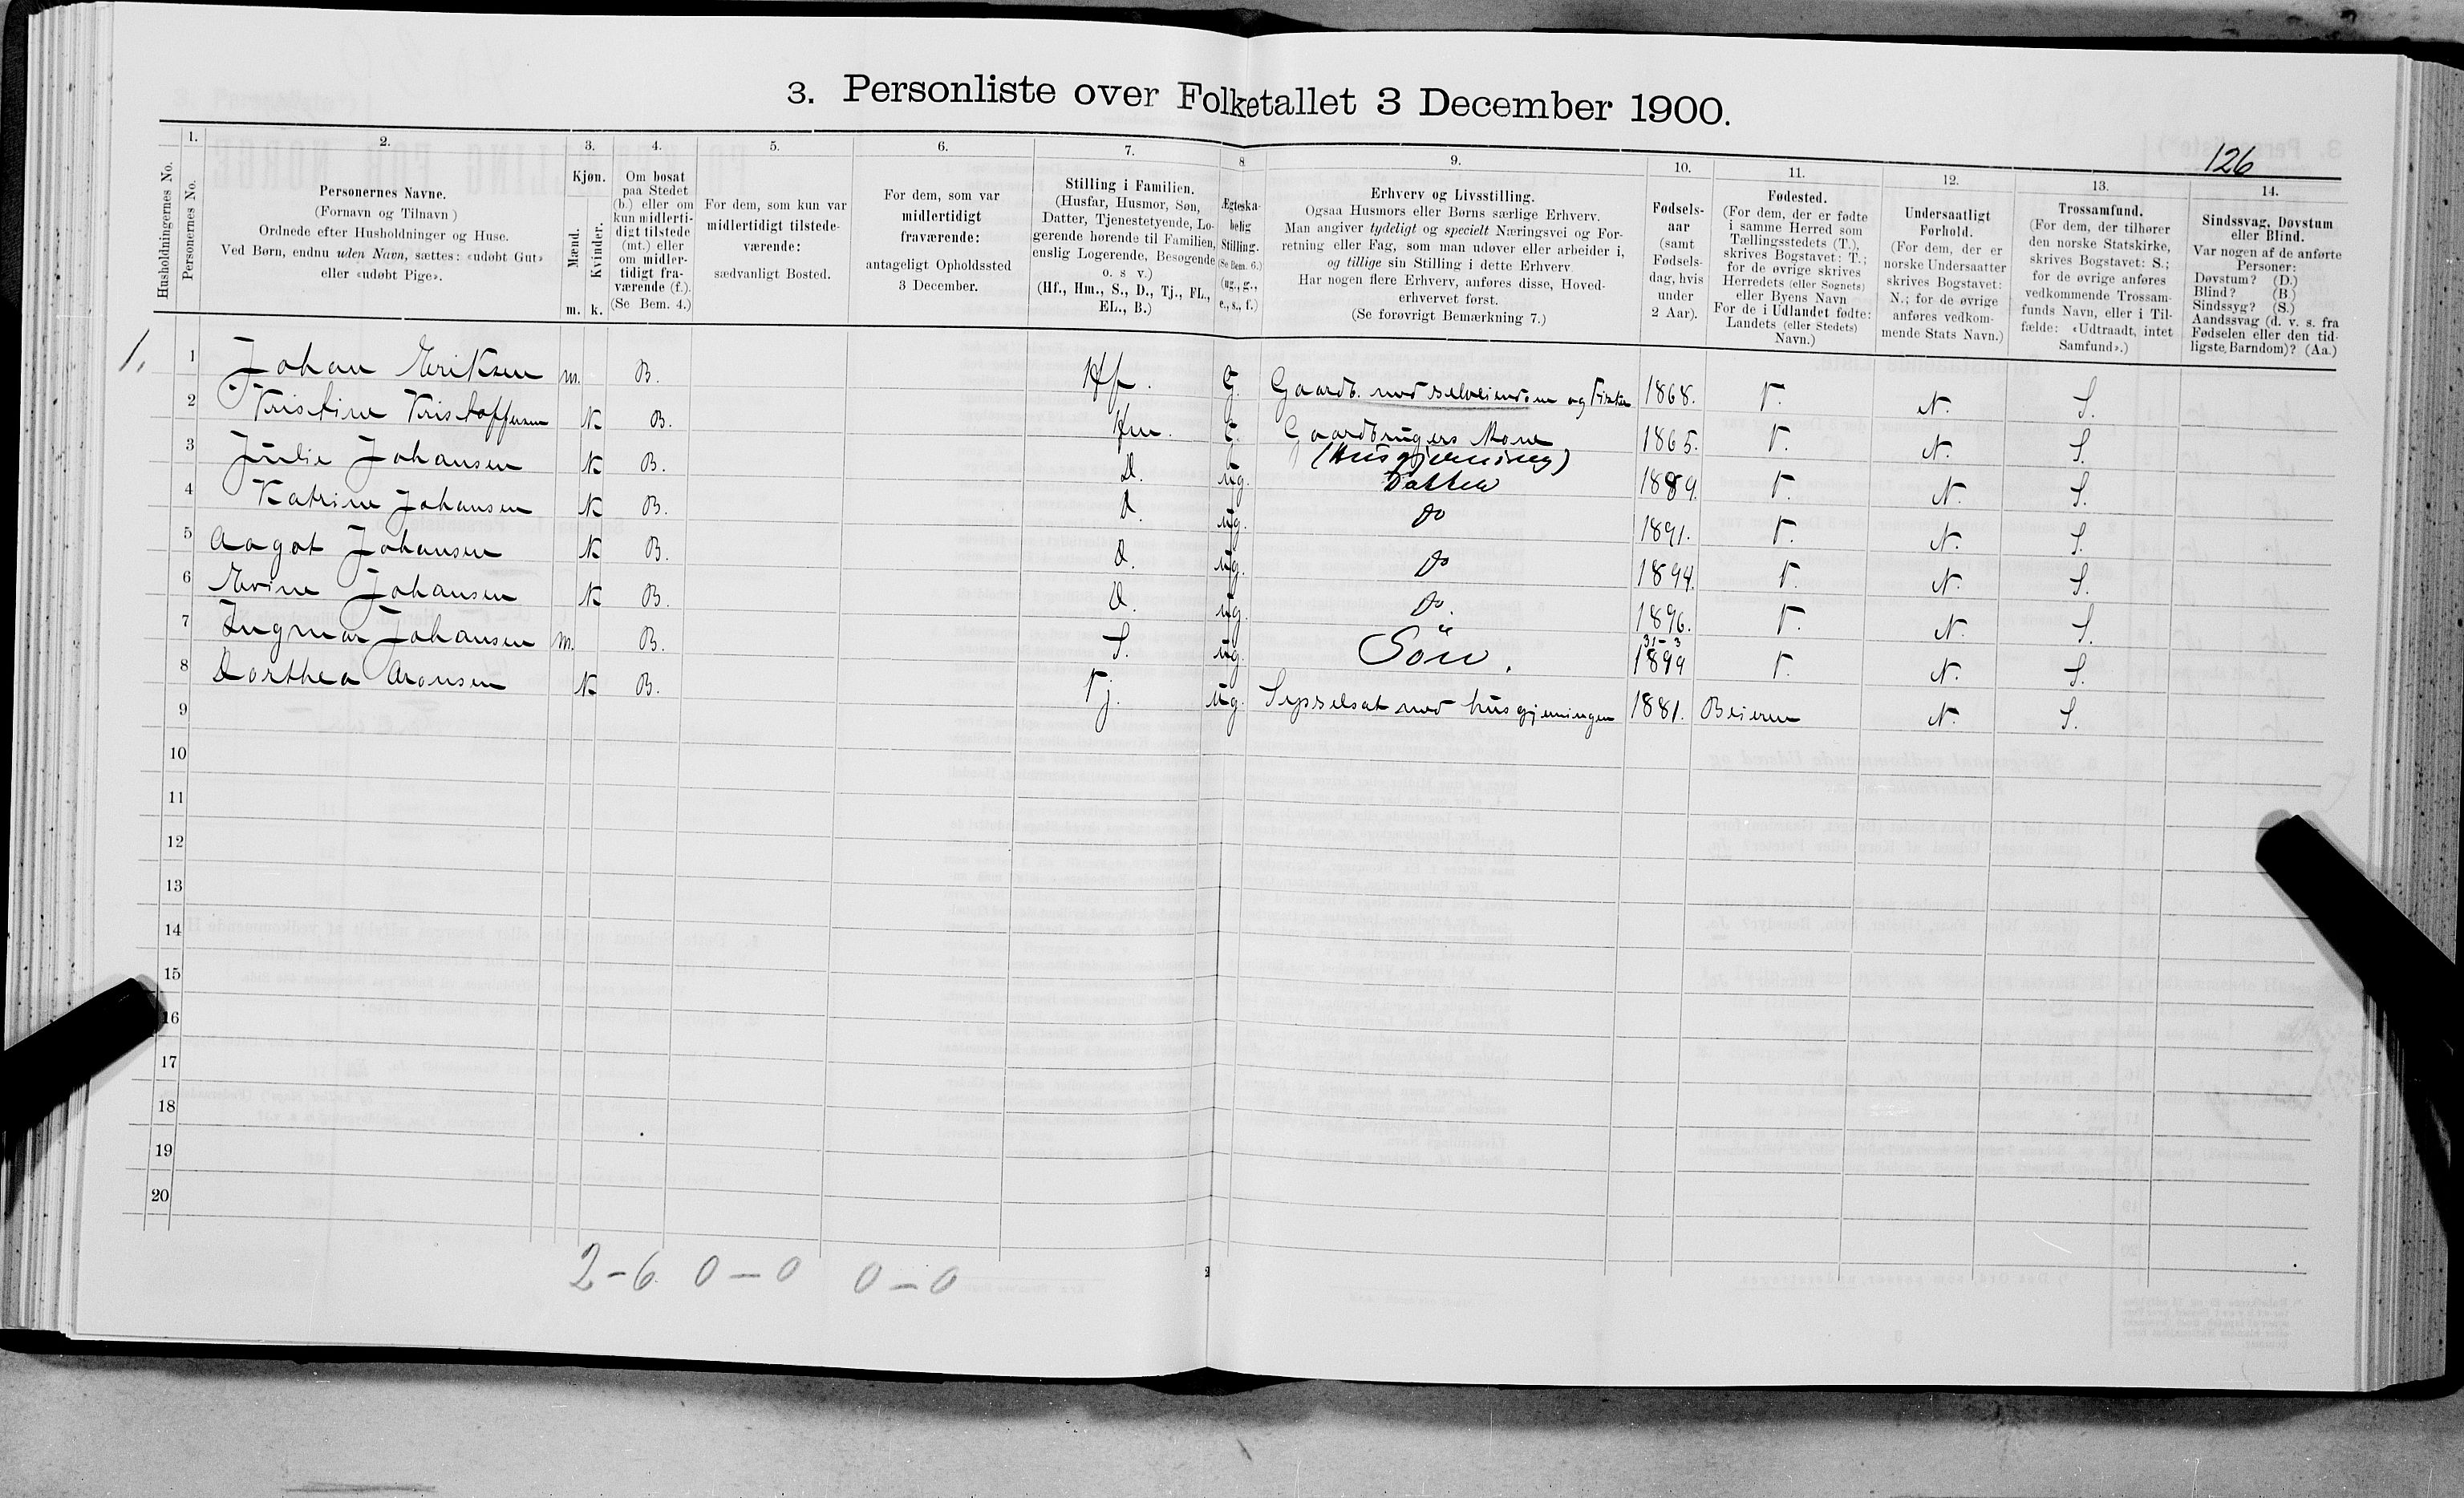 3. Personliste over Folketallet 3 December 1900.
126
Husholdningernes No.
1.
Personernes No.
2.
Personernes Navne.
(Fornavn og Tilnavn)
Ordnede efter Husholdninger og Huse.
Ved Børn, endnu uden Navn, sættes: «udøbt Gut»
eller «udøbt Pige».
3.
Kjøn.
Mænd.
Kvinder.
m. k.
4.
Om bosat
paa Stedet
(b.) eller om
kun midlerti-
digt tilstede
(mt.) eller
om midler-
tidigt fra-
værende (f.).
(Se Bem. 4.)
5.
For dem, som kun var
midlertidigt tilstede-
værende:
sædvanligt Bosted.
6.
For dem, som var
midlertidigt
fraværende:
antageligt Opholdssted
3 December.
7.
Stilling i Familien.
(Husfar, Husmor, Søn,
Datter, Tjenestetyende, Lo-
gerende hørende til Familien,
enslig Logerende, Besøgende
o. s v.)
(Hf., Hm., S., D., Tj., FL.,
EL., B.)
8
Ægteska-
belig
Stilling.
(Se Bem. 6.)
(ug., g.,
e., s., f.)
9.
Erhverv og Livsstilling.
Ogsaa Husmors eller Børns særlige Erhverv.
Man angiver tydeligt og specielt Næringsvei og For-
retning eller Fag, som man udøver eller arbeider i,
og tillige sin Stilling i dette Erhverv.
Har nogen flere Erhverv, anføres disse, Hoved-
erhvervet først.
(Se forøvrigt Bemærkning 7.)
10.
Fødsels-
aar
(samt
Fødsels-
dag, hvis
under
2 Aar).
11.
Fødested.
(For dem, der er fødte
i samme Herred som
Tællingsstedets (T.),
skrives Bogstavet: T.;
for de øvrige skrives
Herredets (eller Sognets)
eller Byens Navn
For de i Udlandet fødte:
Landets (eller Stedets)
Navn.)
12.
Undersaatligt
Forhold.
(For dem, der er
norske Undersaatter
skrives Bogstavet:
N.; for de øvrige
anføres vedkom-
mende Stats Navn.)
13.
Trossamfund.
(For dem, der tilhører
den norske Statskirke,
skrives Bogstavet: S.;
for de øvrige anføres
vedkommende Trossam-
funds Navn, eller i Til-
fælde: «Udtraadt, intet
Samfund».)
14.
Sindssvag, Døvstum
eller Blind.
Var nogen af de anførte
Personer:
Døvstum? (D.)
Blind? (B.)
Sindssyg? (S.)
Aandssvag (d. v. s. fra
Fødselen eller den tid-
ligste Barndom)? (Aa.)
1. 1 Johan Eriksen m. B. Hf. G. Gaardb. med selveiendom og Fisker 1868. T. N. S.
2 Kristine Kristoffersen K B. Hm. G. Gaardbrugers Kone 1865. T. N. S.
(Husgjerning)
3 Julie Johansen K B. D. ug. Datter 1889. T. N. S.
4 Katrine Johansen K B. D. ug. do 1891. T. N. S.
5 Aagot Johansen K B. D. ug. do 1894. T. N. S.
6 Evine Johansen K B. D. ug. do. 1896. T. N. S.
7 Ingmar Johansen m. B. S. ug. Sön. 31-3 1899 T. N. S.
8 Dorthea Aronsen K B. Tj. ug. Sysselsat med husgjerningen 1881. Beieren N. S.
9
10
11
12
13
14
15
16
17
18
19
20
2-6 0-0 0-0